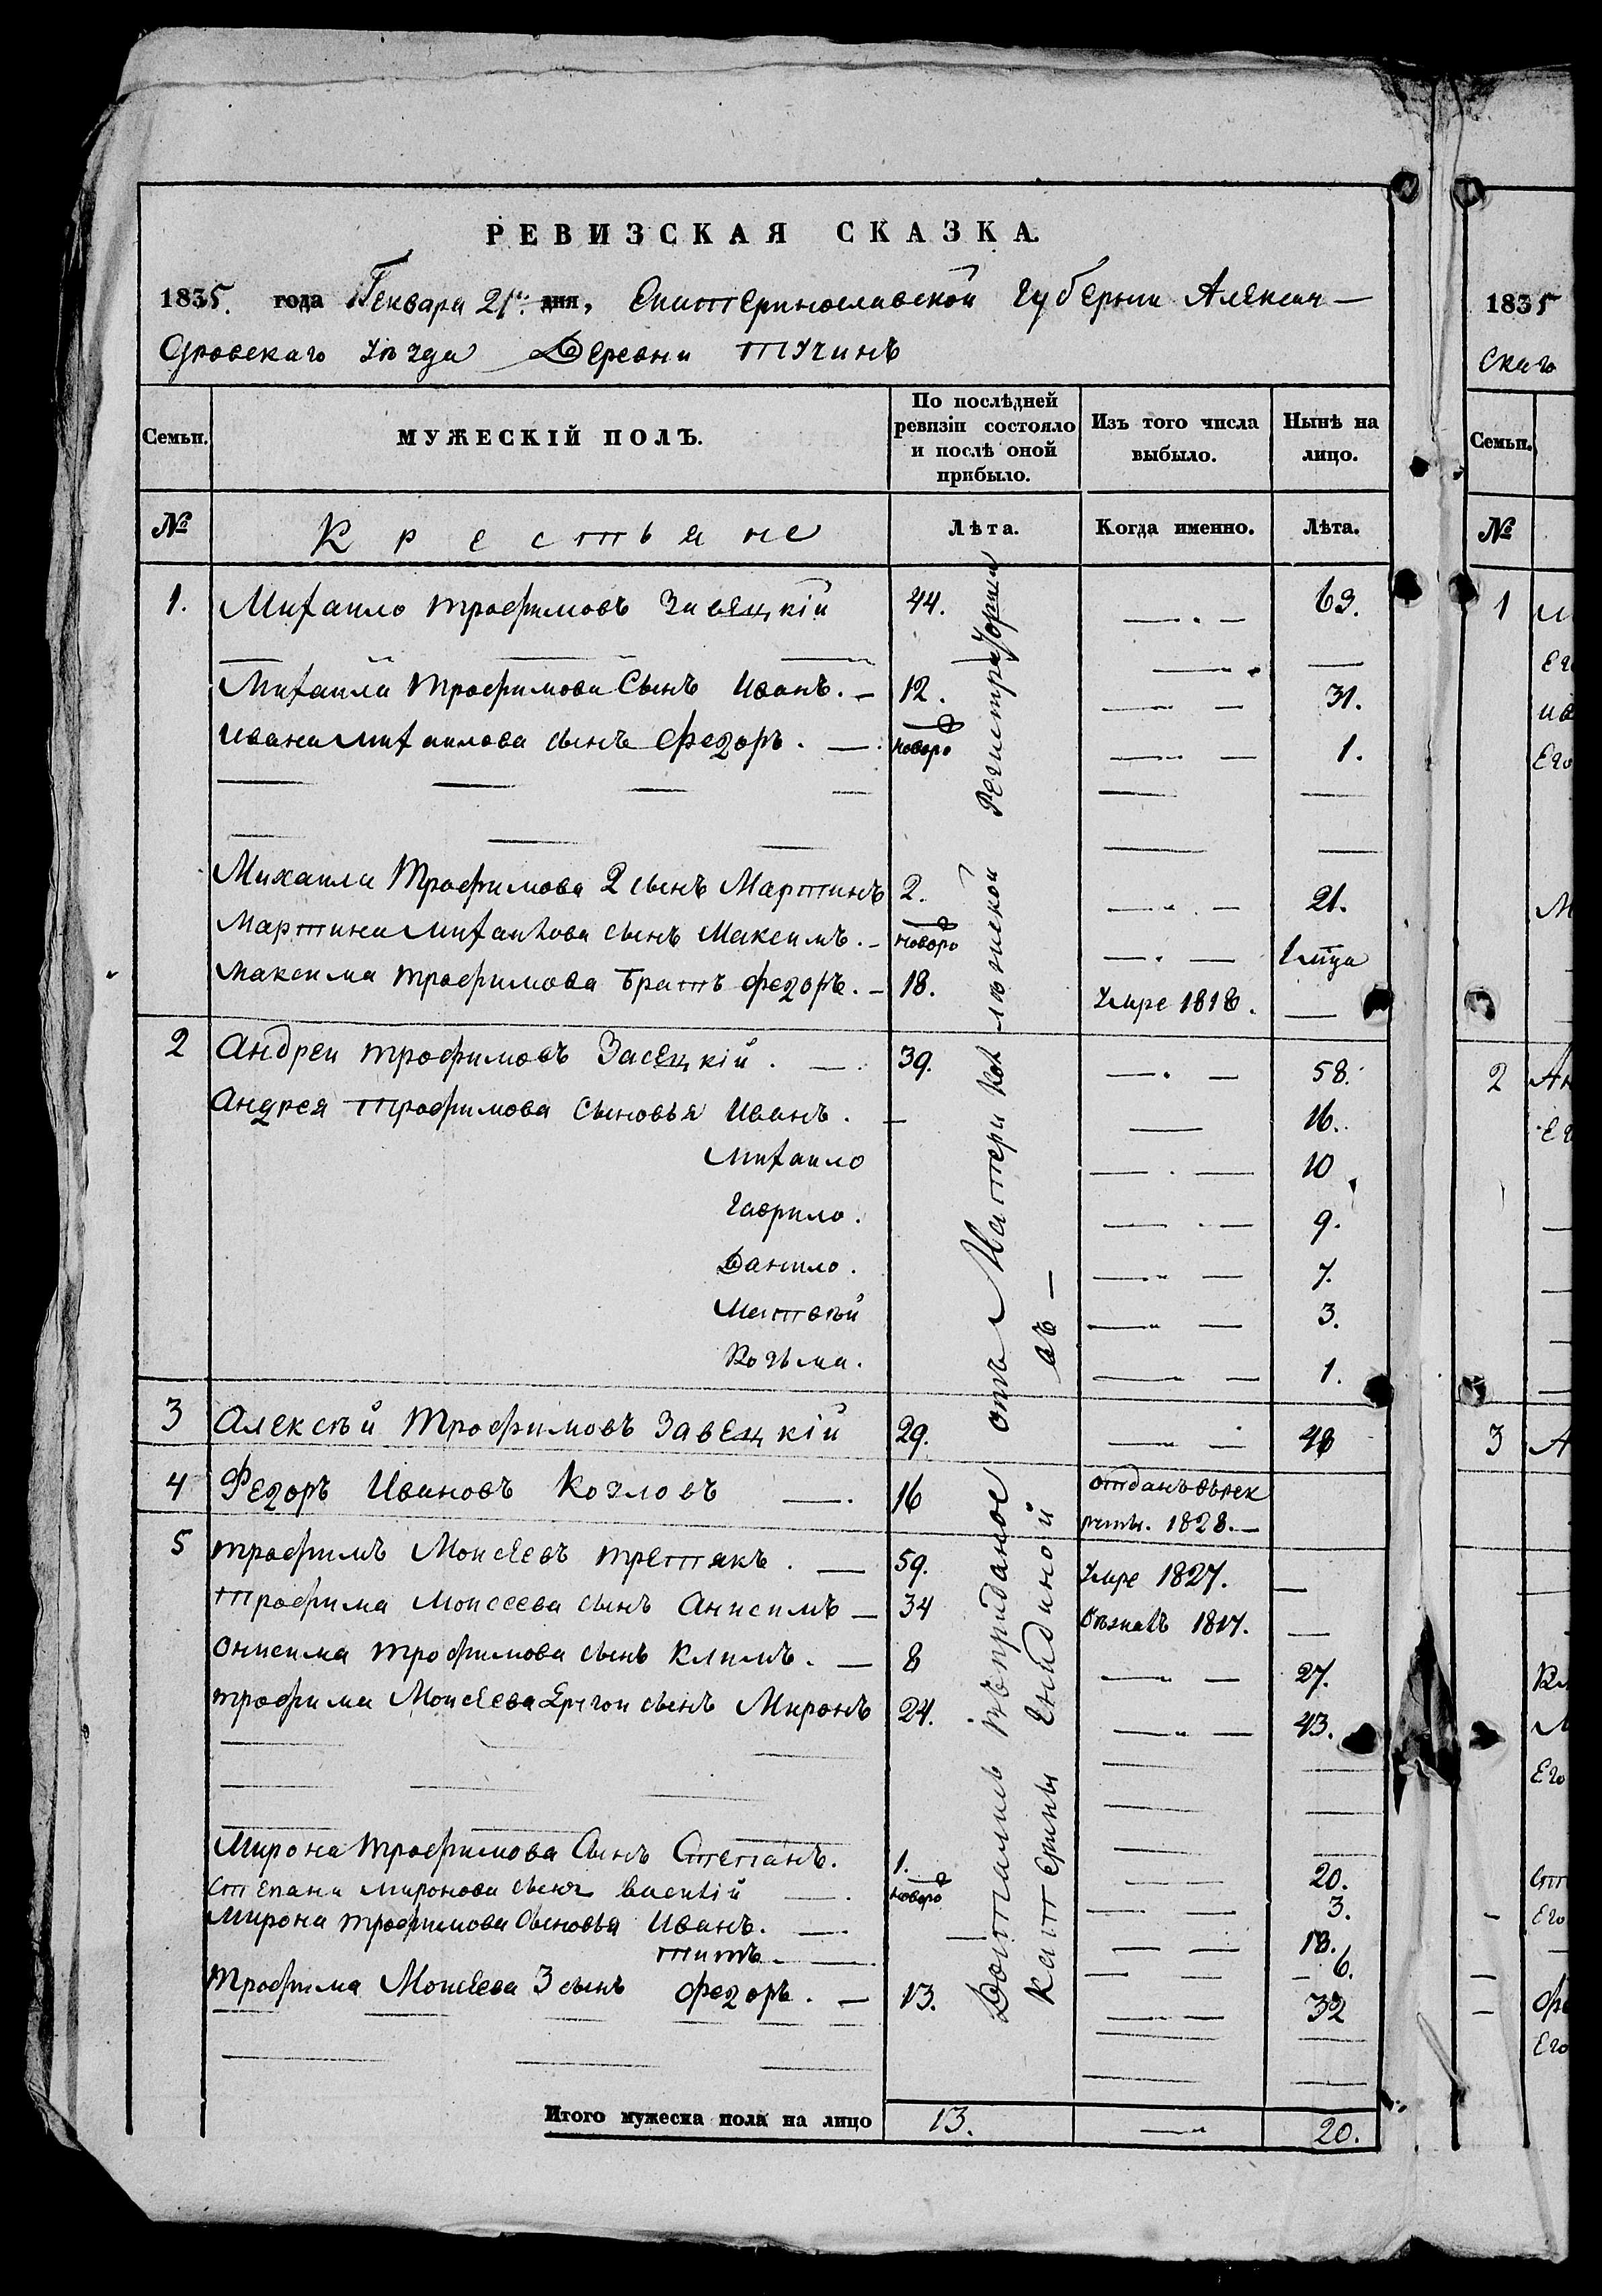 РЕВИЗСКАЯ СКАЗКА.
1835. года Генваря 21го дня, Екатеринославской губернии Алексан-
дровскаго уѣзда Деревни Тучинъ
Семьи. МУЖЕСКІЙ ПОЛЪ. По послѣдней ревизіи состояло и послѣ оной прибыло. Изъ того числа выбыло. Нынѣ на лицо.
№ Крестьяне Лѣта. Когда именно. Лѣта.
1. Михаило Трофимовъ 44. 63.
Михаила Трофимова Сынъ Иванъ. 12. 31.
Ивана Михаилова сынъ Федоръ. новоро 1.
Михаила Трофимова 2 сынъ Мартинъ 2. 21.
Мартина Михаилова сынъ Максимъ. новоро 1 мца
Максима Трофимова братъ Федоръ. 18. Умре 1818.
2 Андреи Трофимовъ Засецкій. 39. 58.
Андрея Трофимова Сыновья Иванъ. 16.
Михаило 10
Гаврило. 9.
Данило. 7.
Матвѣй 3.
Козьма. 1.
3 Алексѣй Трофимовъ 29. 48
4 Федоръ Ивановъ Козловъ 16 отданъ въ рек
руты. 1828.
5 Трофимъ Моисеевъ Третякъ. 59. Умре 1827.
Трофима Моисеева сынъ Анисимъ 34 1817.
Онисима Трофимова сынъ Климъ. 8 27.
Трофима Моисеева другои сынъ Миронъ 24. 43.
Мирона Трофимова Сынъ Степанъ. 1. 20.
Степана Миронова сынъ Василій новоро 3.
Мирона Трофимова Сыновья Иванъ. 18.
Титъ. 6.
Трофима Моисеева 3 сынъ Федоръ. 13. 32
Достались въ приданое отъ Матери Регистраторши
Катерины
Итого мужеска пола на лицо 13. 20.
1835
скаго
Семьи.
№
1
2
3